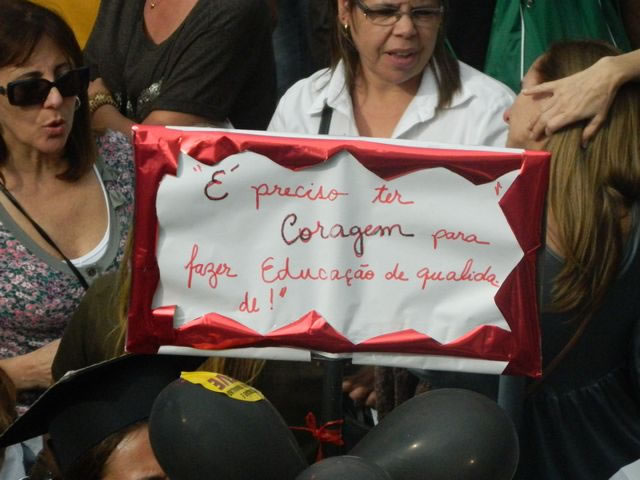 "É preciso ter "
Coragem para
fazer Educação de qualida-
de!"